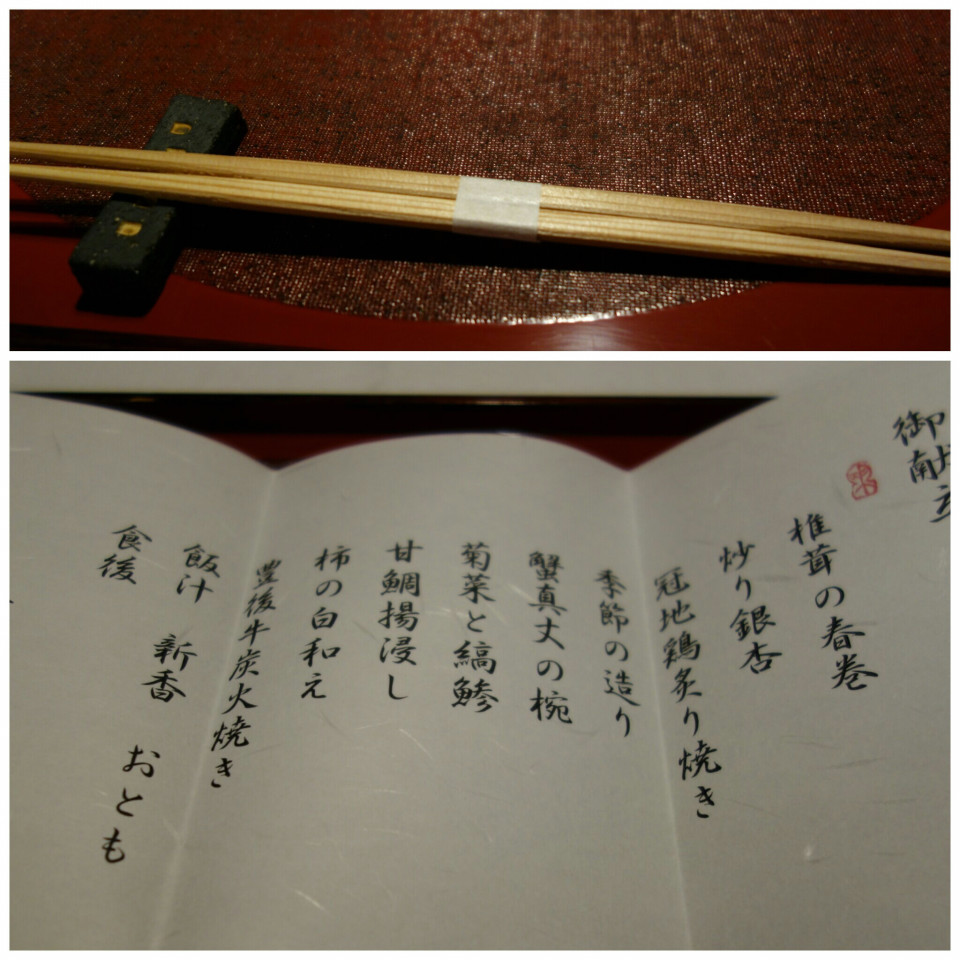 御献立
椎茸の春巻
炒り銀杏
冠地鶏炙り焼き
季節の造り
蟹真丈の椀
菊菜と縞鯵
甘鯛揚浸し
柿の白和え
豊後牛炭火焼き
飯汁 新香 おとも
食後